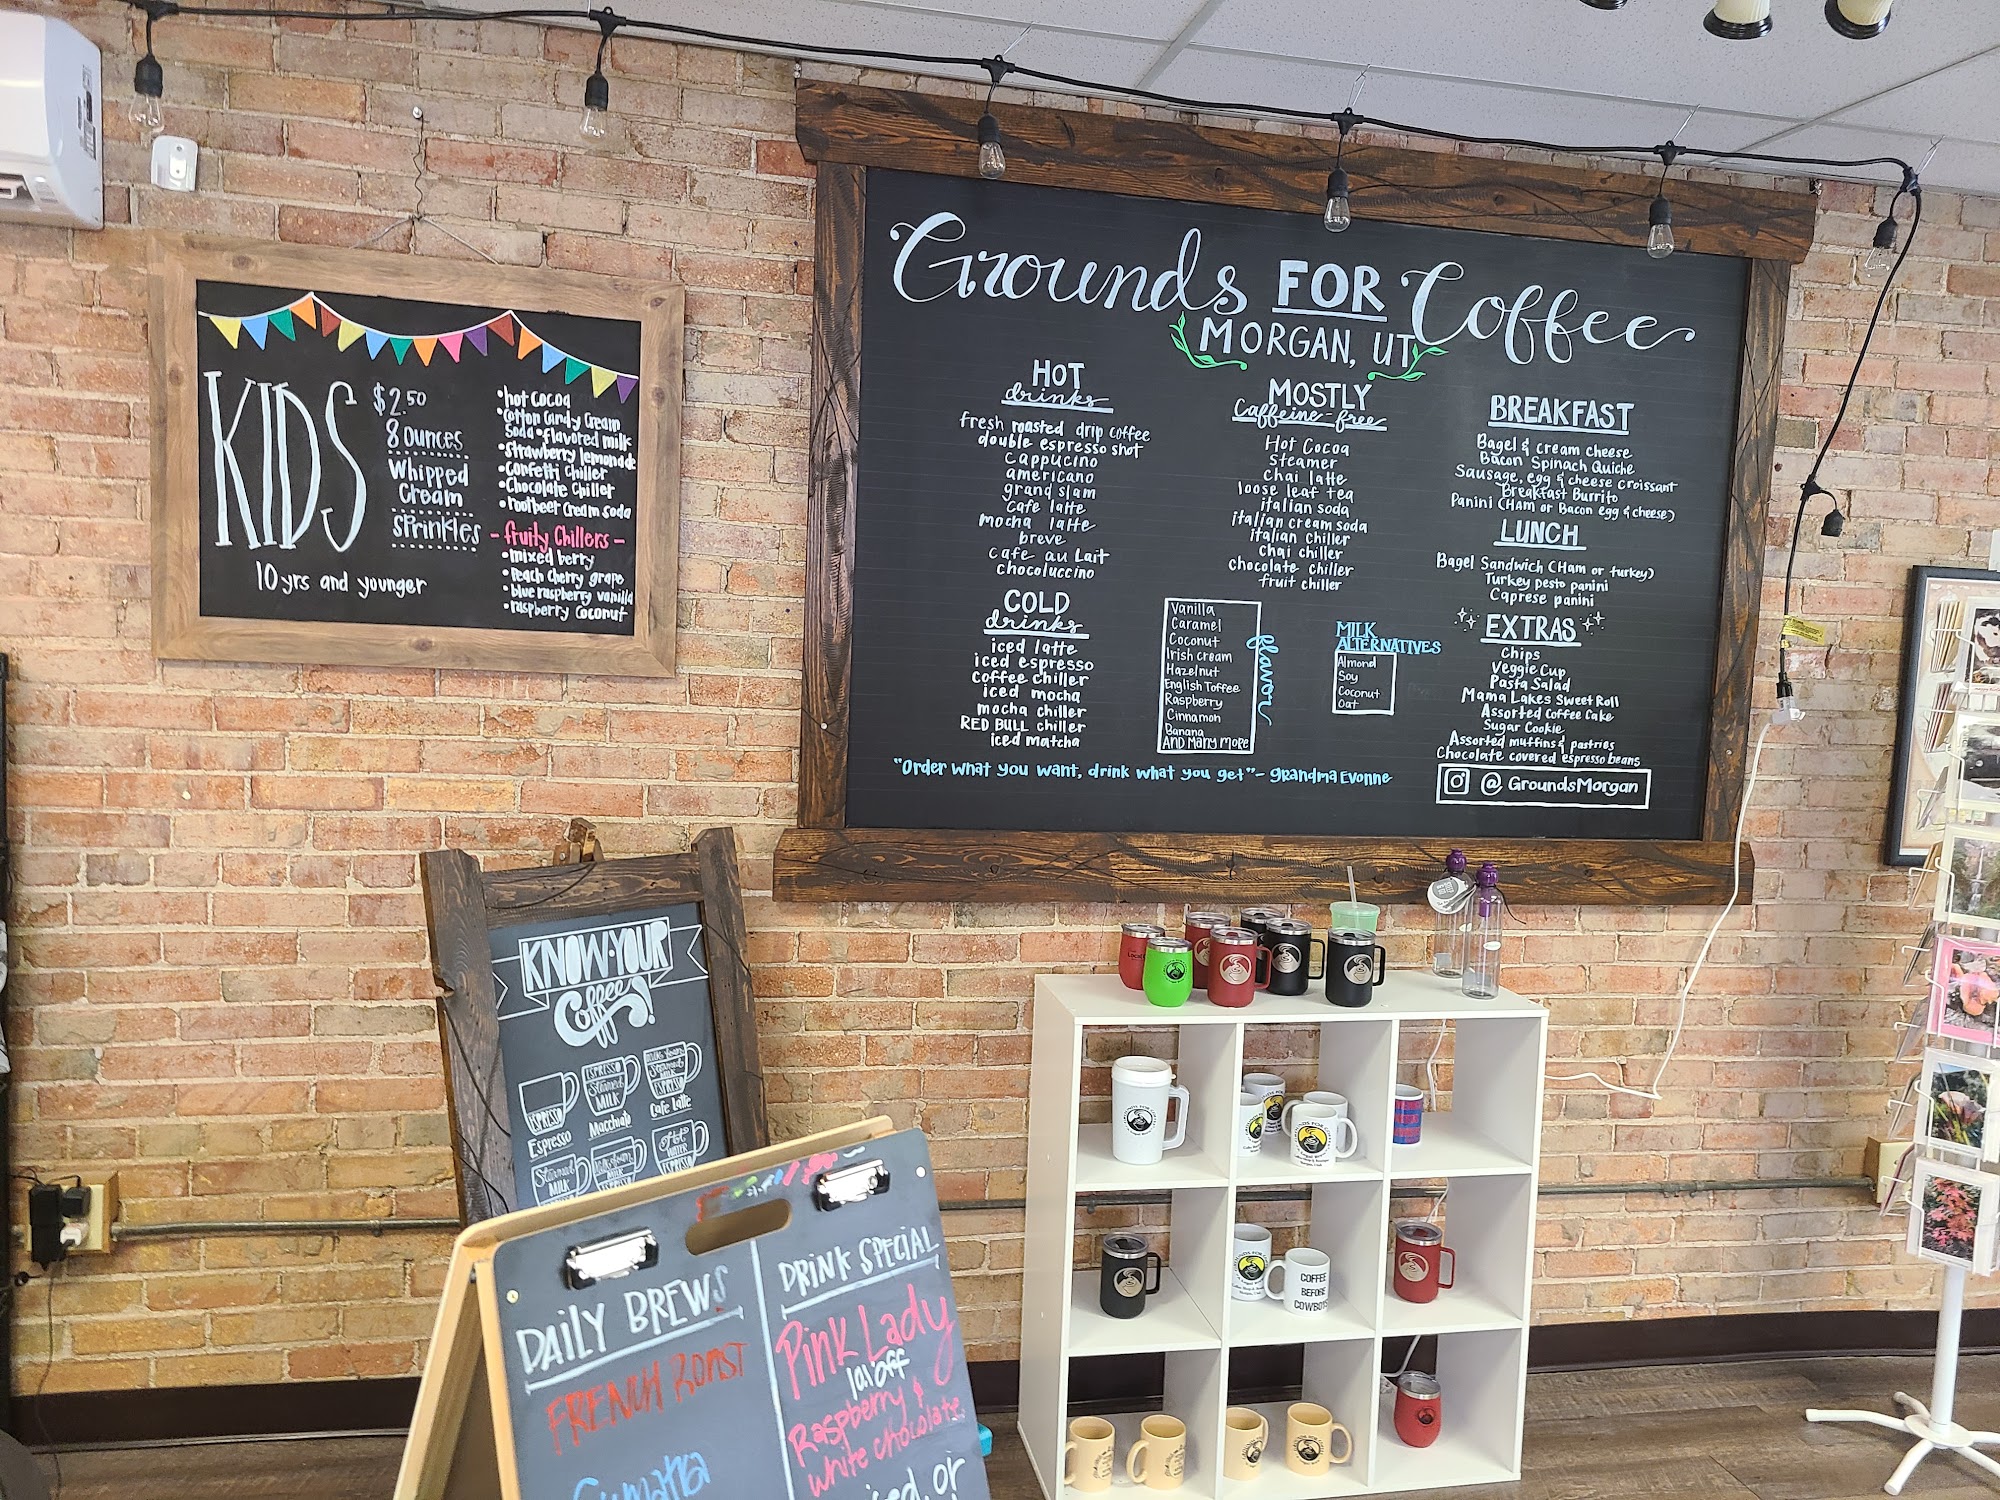 KIDS
$2.50
8 ounces
Whipped
Cream
sprinkles
10 yrs and younger
•hot Cocoa
•Cotton Candy Cream
Soda •flavored milk
•strawberry lemonade
•Confetti Chiller
•Chocolate Chiller
•rootbeer cream soda
- fruity Chillers -
•mixed berry
•Peach Cherry grape
•blue raspberry vanilla
•raspberry Coconut
Grounds FOR Coffee
MORGAN, UT
HOT
drinks
fresh roasted drip coffee
double espresso shot
cappucino
americano
grand slam
cafe latte
mocha latte
breve
cafe au Lait
chocoluccino
COLD
drinks
iced latte
iced espresso
coffee chiller
iced mocha
mocha chiller
RED BULL chiller
iced matcha
MOSTLY
Caffeine-free
Hot Cocoa
Steamer
chai latte
loose leaf tea
italian soda
italian cream soda
italian chiller
chai chiller
chocolate chiller
fruit chiller
Vanilla
Caramel
Coconut
Irish cream
Hazelnut
English Toffee
Raspberry
Cinnamon
Banana
AND MANY MORE
flavor
MILK
ALTERNATIVES
Almond
Soy
Coconut
Oat
BREAKFAST
Bagel & cream cheese
Bacon Spinach Quiche
Sausage, egg & cheese croissant
Breakfast Burrito
Panini (HAM or Bacon egg & cheese)
LUNCH
Bagel Sandwich (Ham or turkey)
Turkey pesto panini
Caprese panini
EXTRAS
Chips
Veggie Cup
Pasta Salad
Mama Lakes Sweet Roll
Assorted Coffee Cake
Sugar Cookie
Assorted muffins & pastries
Chocolate covered espresso beans
@ GroundsMorgan
"Order what you want, drink what you get" - Grandma Evonne
KNOW·YOUR
Coffee!
ESPRESSO
Espresso
ESPRESSO
Steamed
MILK
Macchiato
Milk foam
Steamed
MILK
ESPRESSO
Cafe Latte
Steamed
MILK
Milk foam
ESPRESSO
Hot
WATER
ESPRESSO
DAILY BREWS
FRENCH ROAST
Sumatra
DRINK SPECIAL
Pink Lady
101 off
Raspberry &
white chocolate
iced, or
COFFEE
BEFORE
COWBOYS